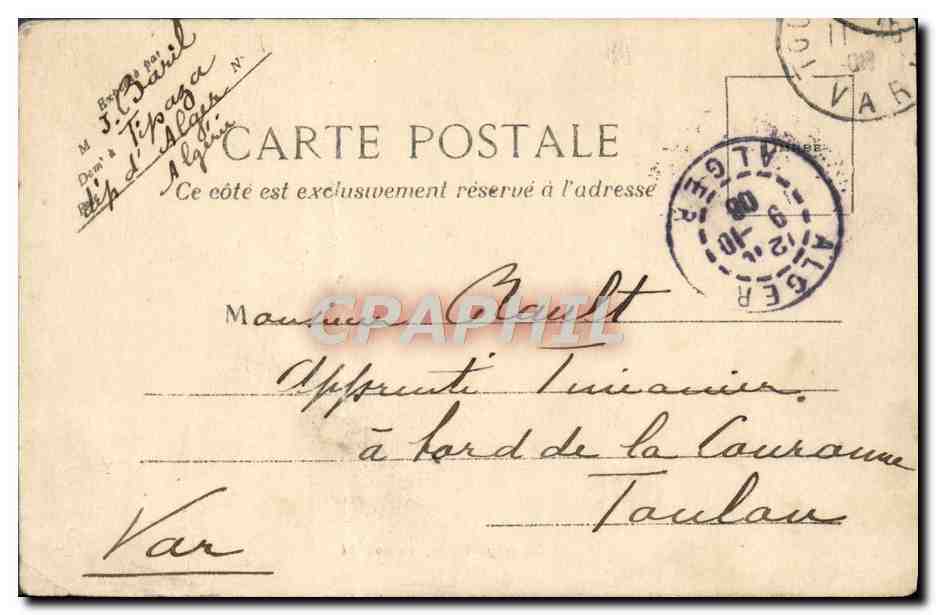 Expédié par
M J. Baril N°
Dem^t à Tipaza
dép d'Alger
Algérie
CARTE POSTALE
Ce côté est exclusivement réservé à l'adresse
TIMBRE
VAR
11
ALGER ALGER
9
12 -10
08
Monsieur Rault
CPARAMA
Apprenti Timonier
à bord de la Couronne
Toulon
Var